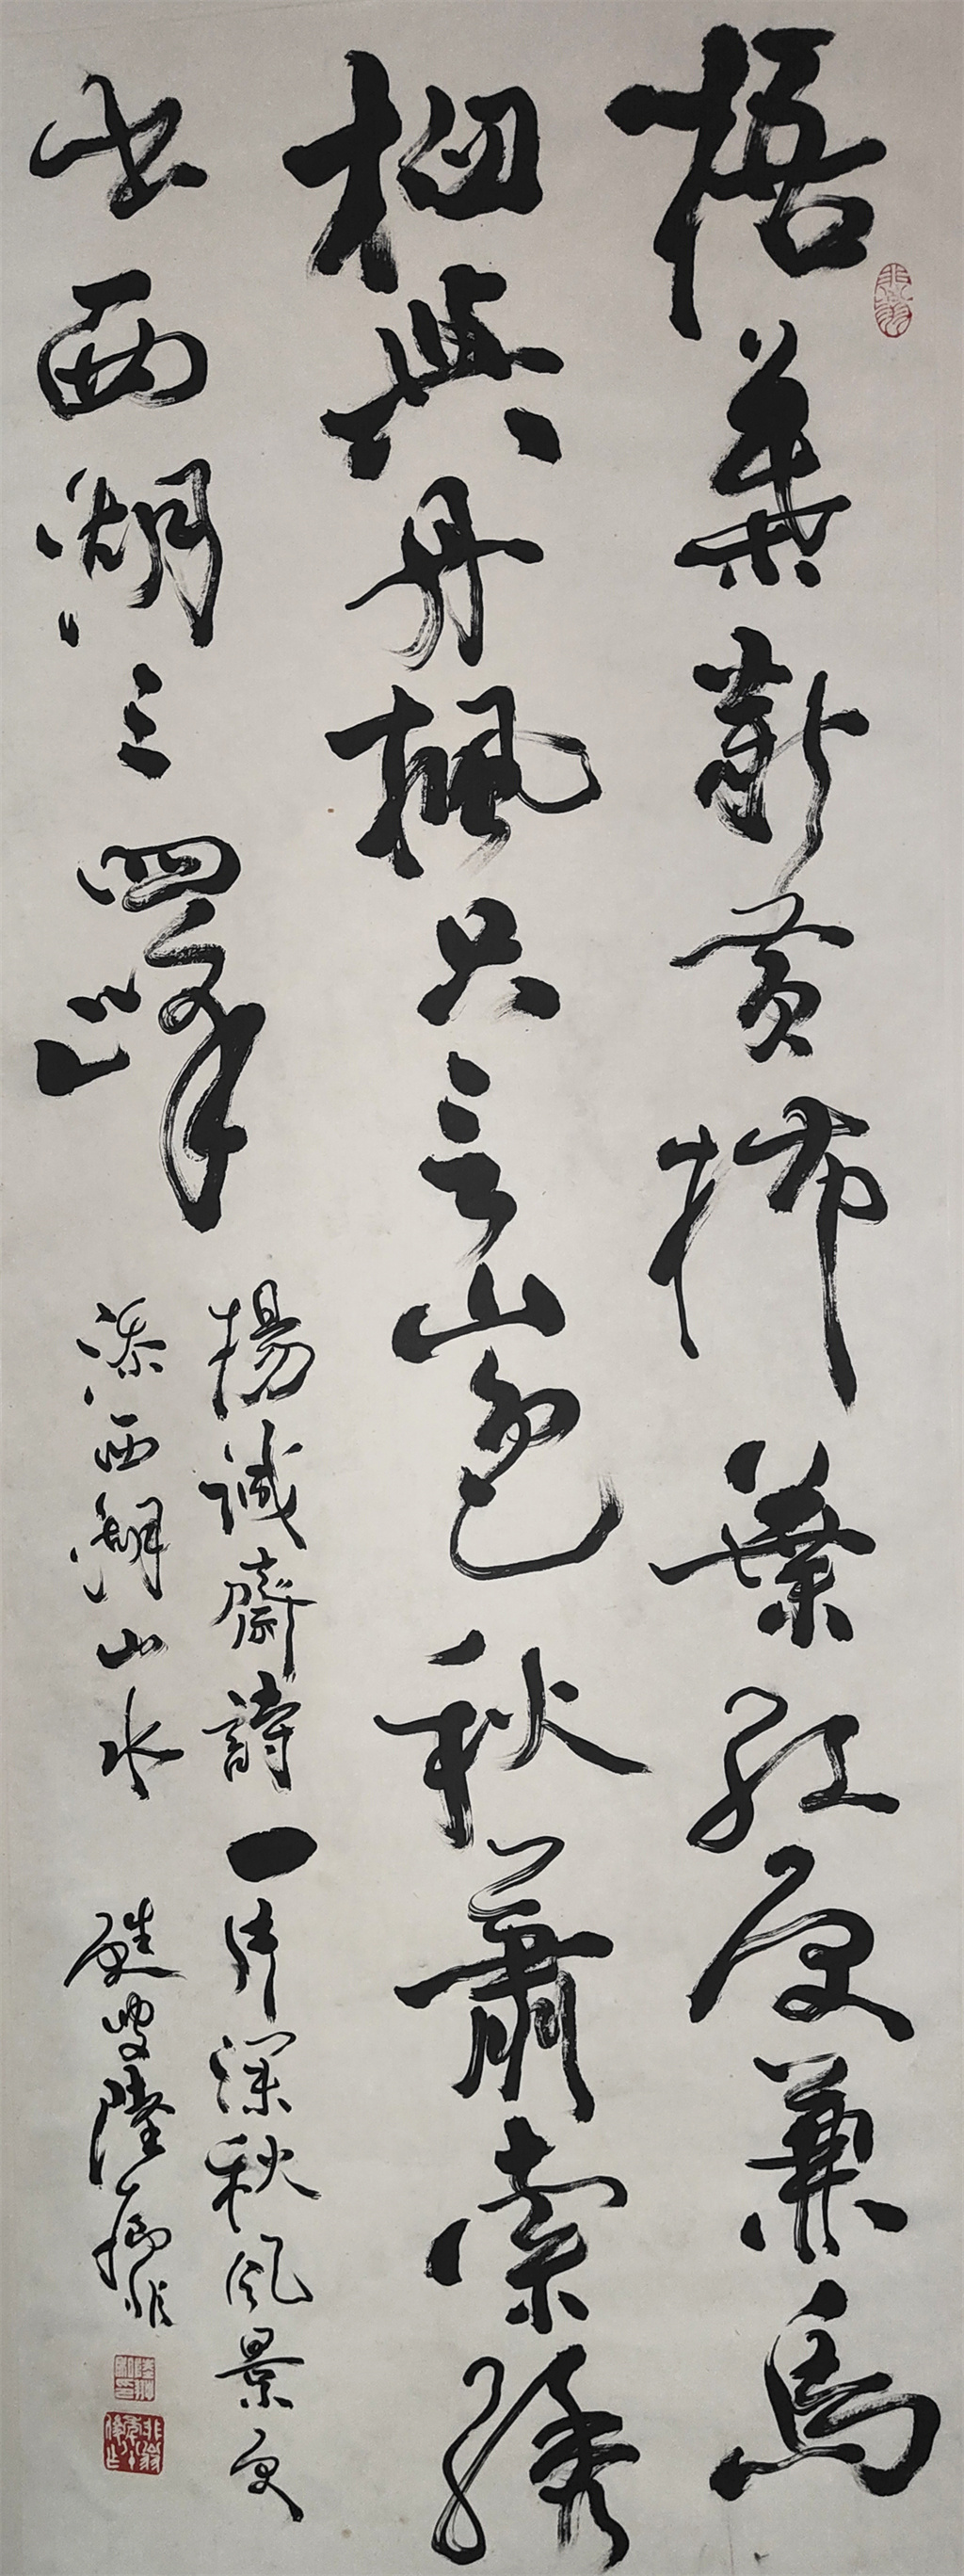 非翁
梧葉新黃柿葉紅更兼烏
桕與丹楓只言山色秋蕭索繡
出西湖三四峰
楊誠齋詩一片深秋風景更
添西湖山水 甦叟陸抑非